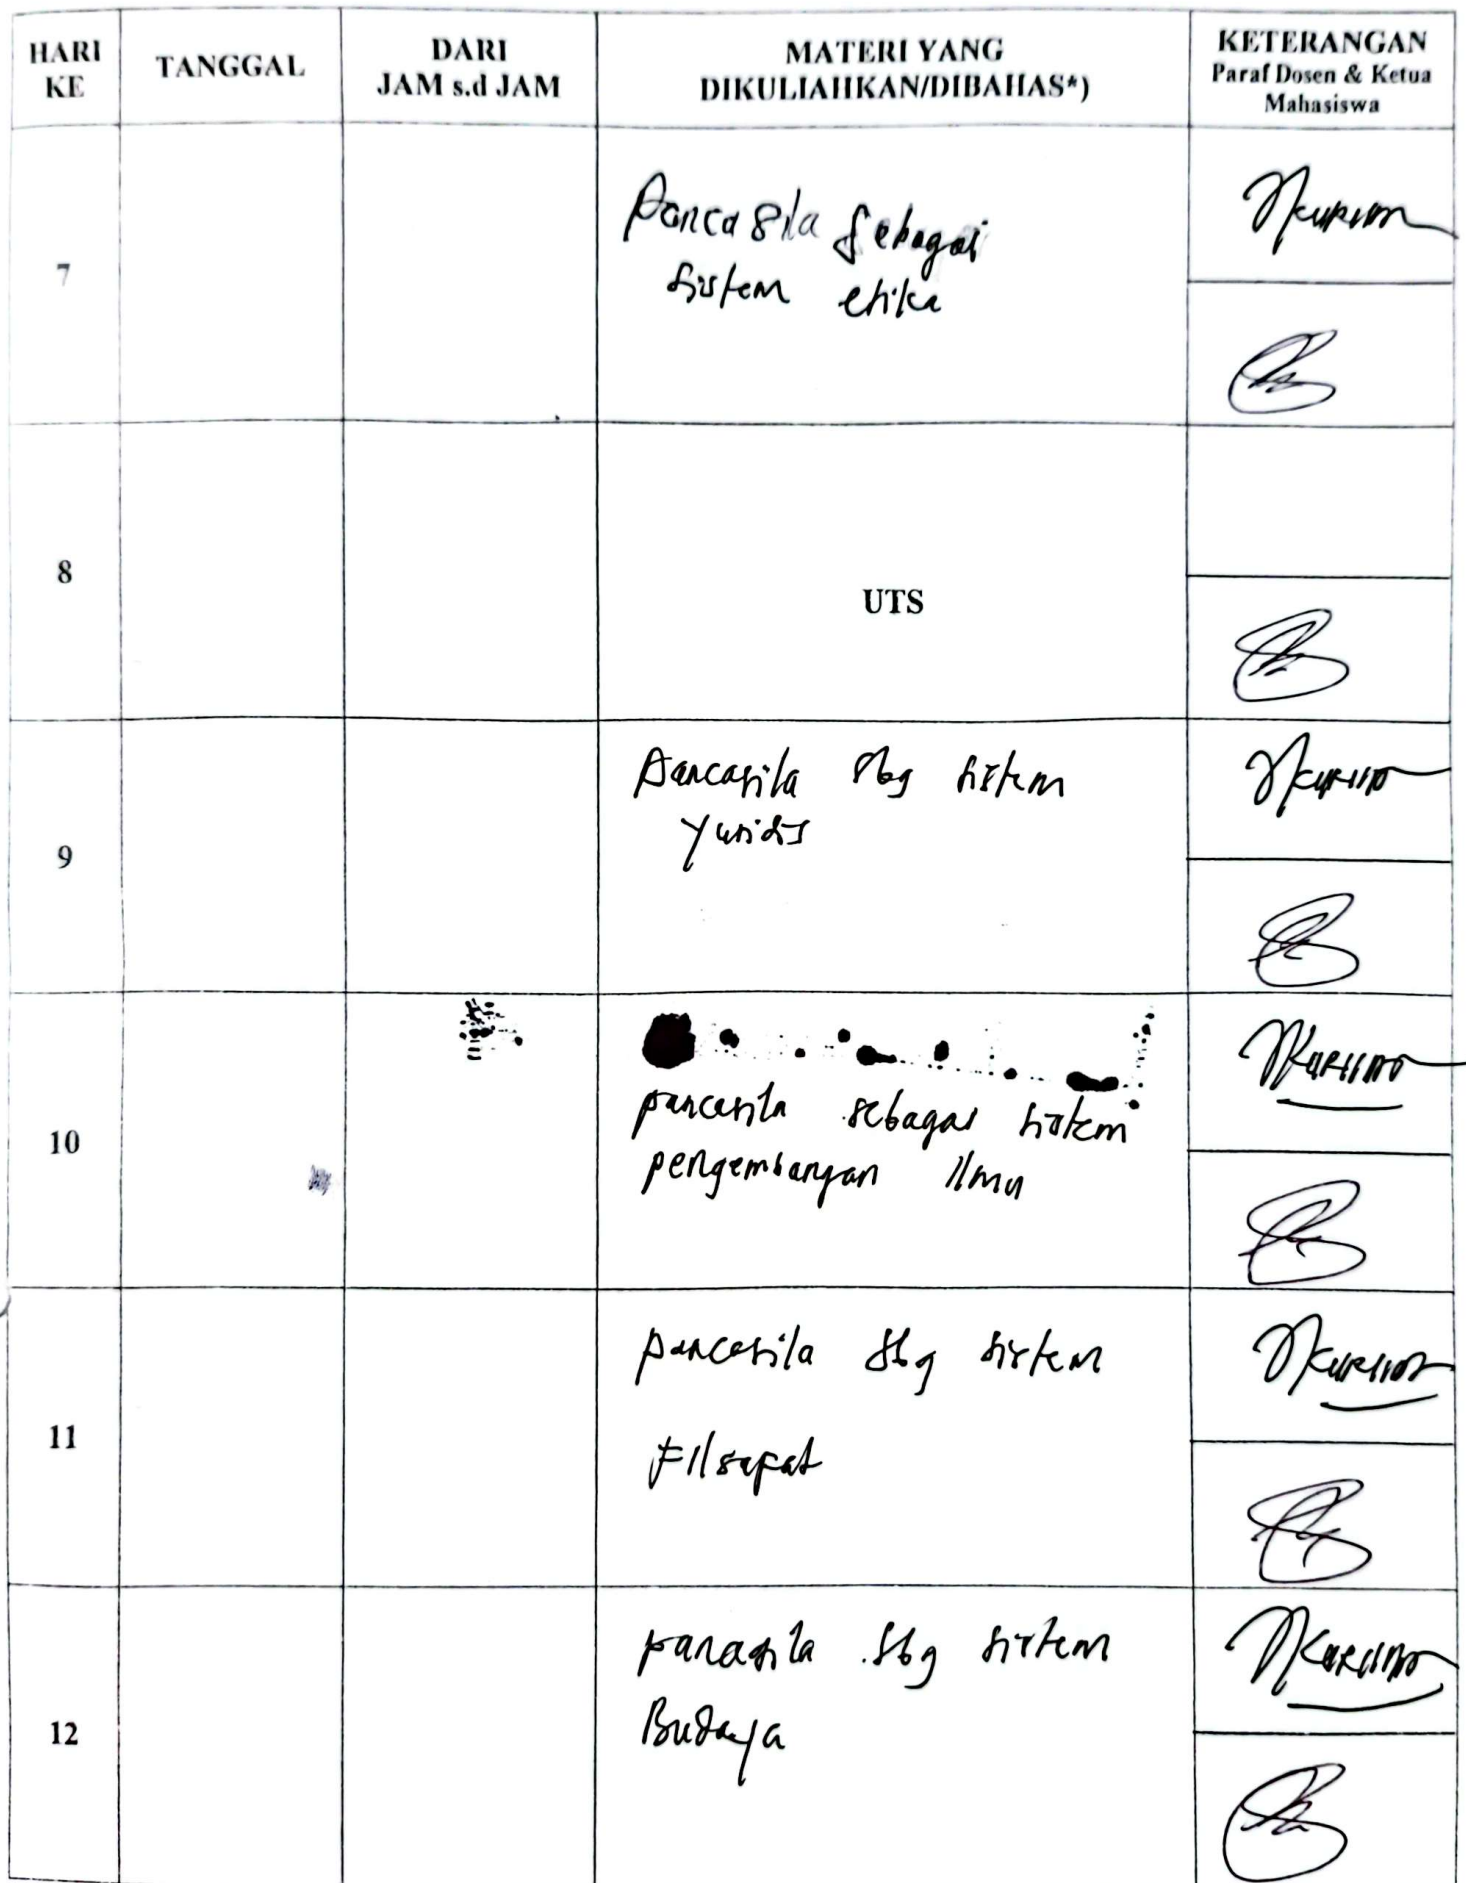 HARI KE
TANGGAL
DARI
JAM s.d JAM
MATERI YANG
DIKULIAHKAN/DIBAHAS*)
KETERANGAN
Paraf Dosen & Ketua
Mahasiswa
7
Pancasila sebagai
sistem etika
8
UTS
9
Pancasila sbg sistem
yuridis
10
pancasila sebagai sistem
pengembangan Ilmu
11
pancasila sbg sistem
Filsapat
12
panasila sbg sistem
Budaya